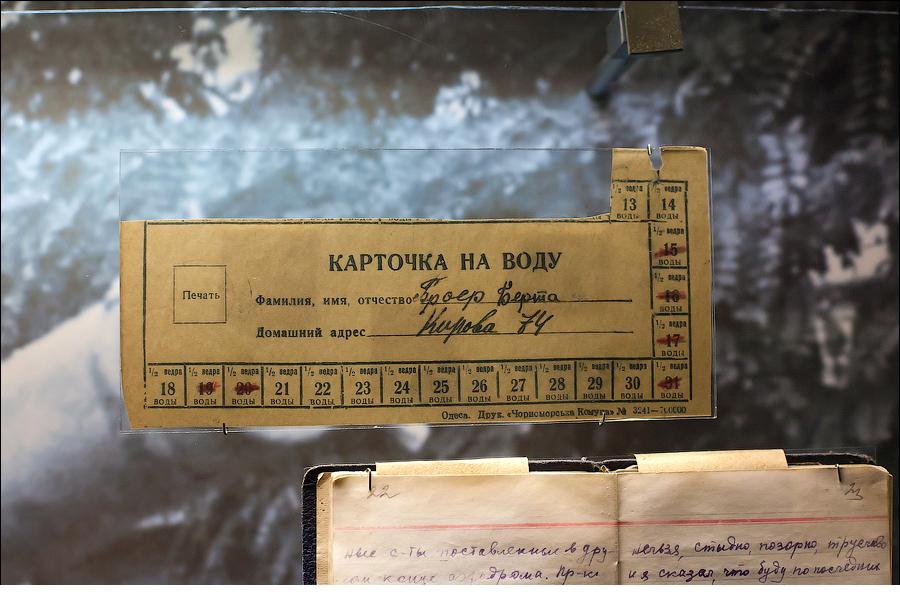 1/2 ведра 13 воды
1/2 ведра 14 воды
1/2 ведра 15 воды
1/2 ведра 16 воды
1/2 ведра 17 воды
КАРТОЧКА НА ВОДУ
Печать
Фамилия, имя, отчество Броер Берта
Домашний адрес Кирова 74
1/2 ведра 18 воды
1/2 ведра 19 воды
1/2 ведра 20 воды
1/2 ведра 21 воды
1/2 ведра 22 воды
1/2 ведра 23 воды
1/2 ведра 24 воды
1/2 ведра 25 воды
1/2 ведра 26 воды
1/2 ведра 27 воды
1/2 ведра 28 воды
1/2 ведра 29 воды
1/2 ведра 30 воды
1/2 ведра 31 воды
Одеса. Друк. «Чорноморська Комуна» № 3241—700000
22
ные с-ты поставленные в дру-
гом конце аэродрома. Пр-к
23
нельзя, стыдно, позорно, трусливо
и я сказал, что буду по последних